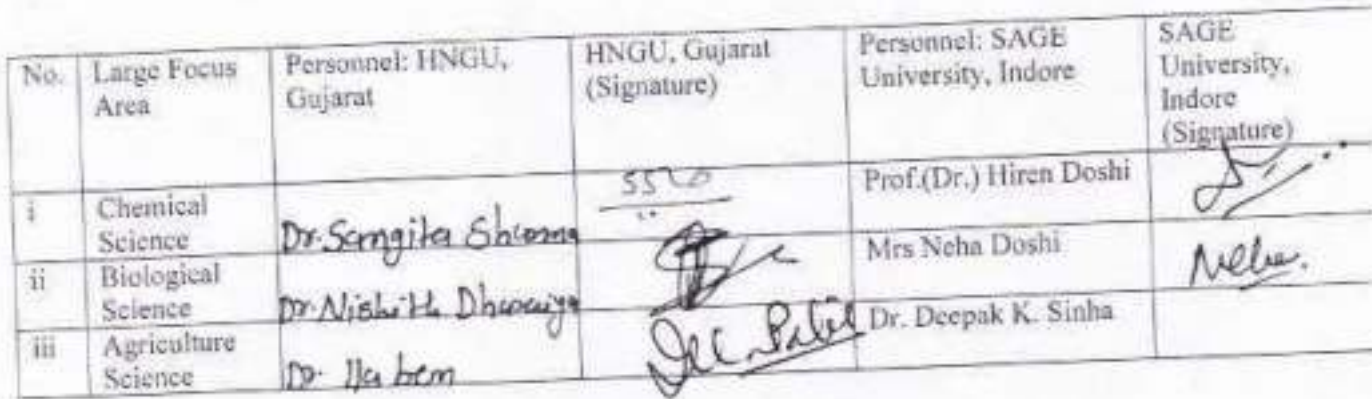 No. Large Focus Area Personnel: HNGU, Gujarat HNGU, Gujarat (Signature) Personnel: SAGE University, Indore SAGE University, Indore (Signature)
i Chemical Science Dr. Sangita Sharma Prof.(Dr.) Hiren Doshi
ii Biological Science Dr. Nishith Mrs Neha Doshi Neha.
iii Agriculture Science Dr. Ila ben Patel Dr. Deepak K. Sinha